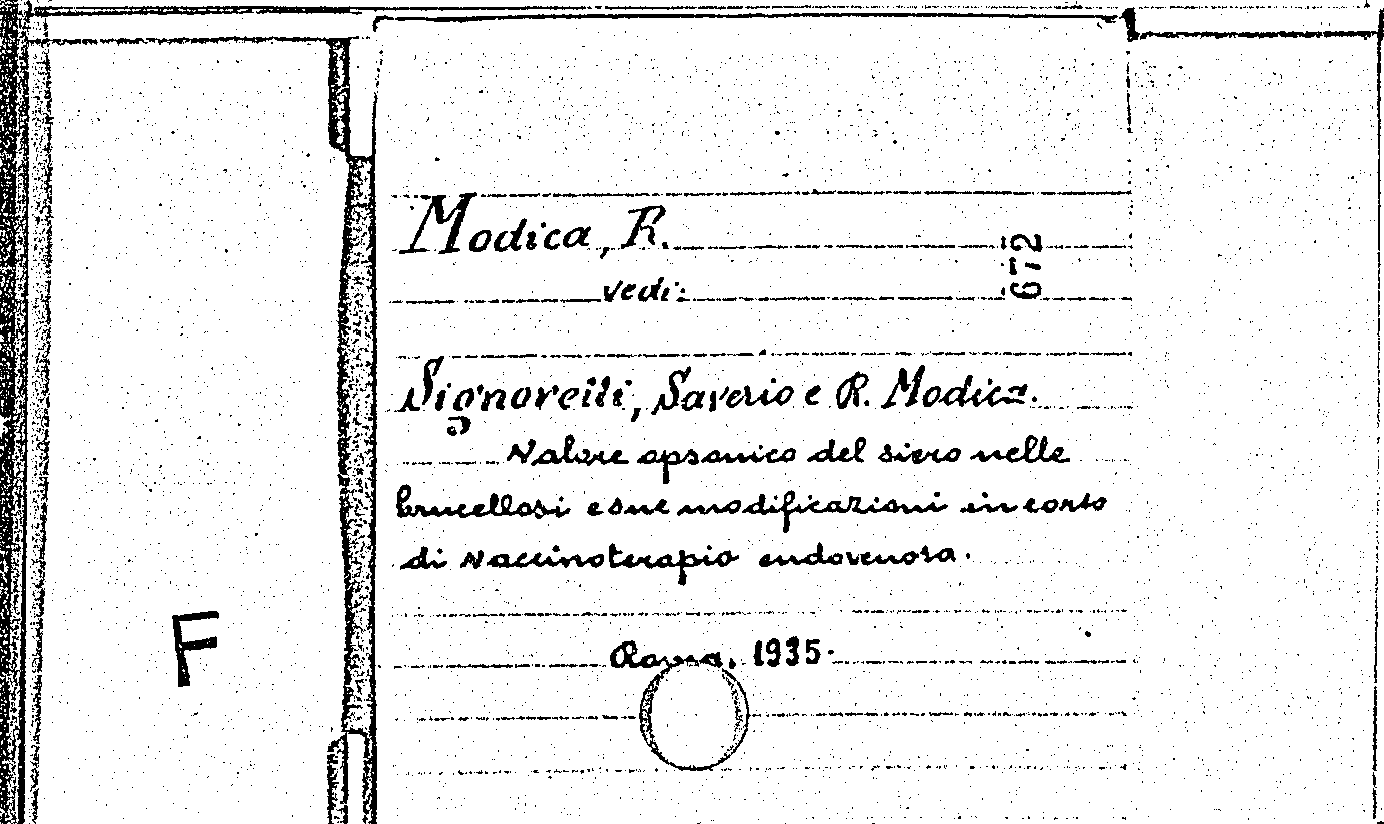 Modica, R.
672
vedi:
Signorelli, Saverio e R. Modica.
Valore opsonico del siero nelle
brucellosi e sue modificazioni in corso
di vaccinoterapia endovenosa.
F
Roma, 1935.